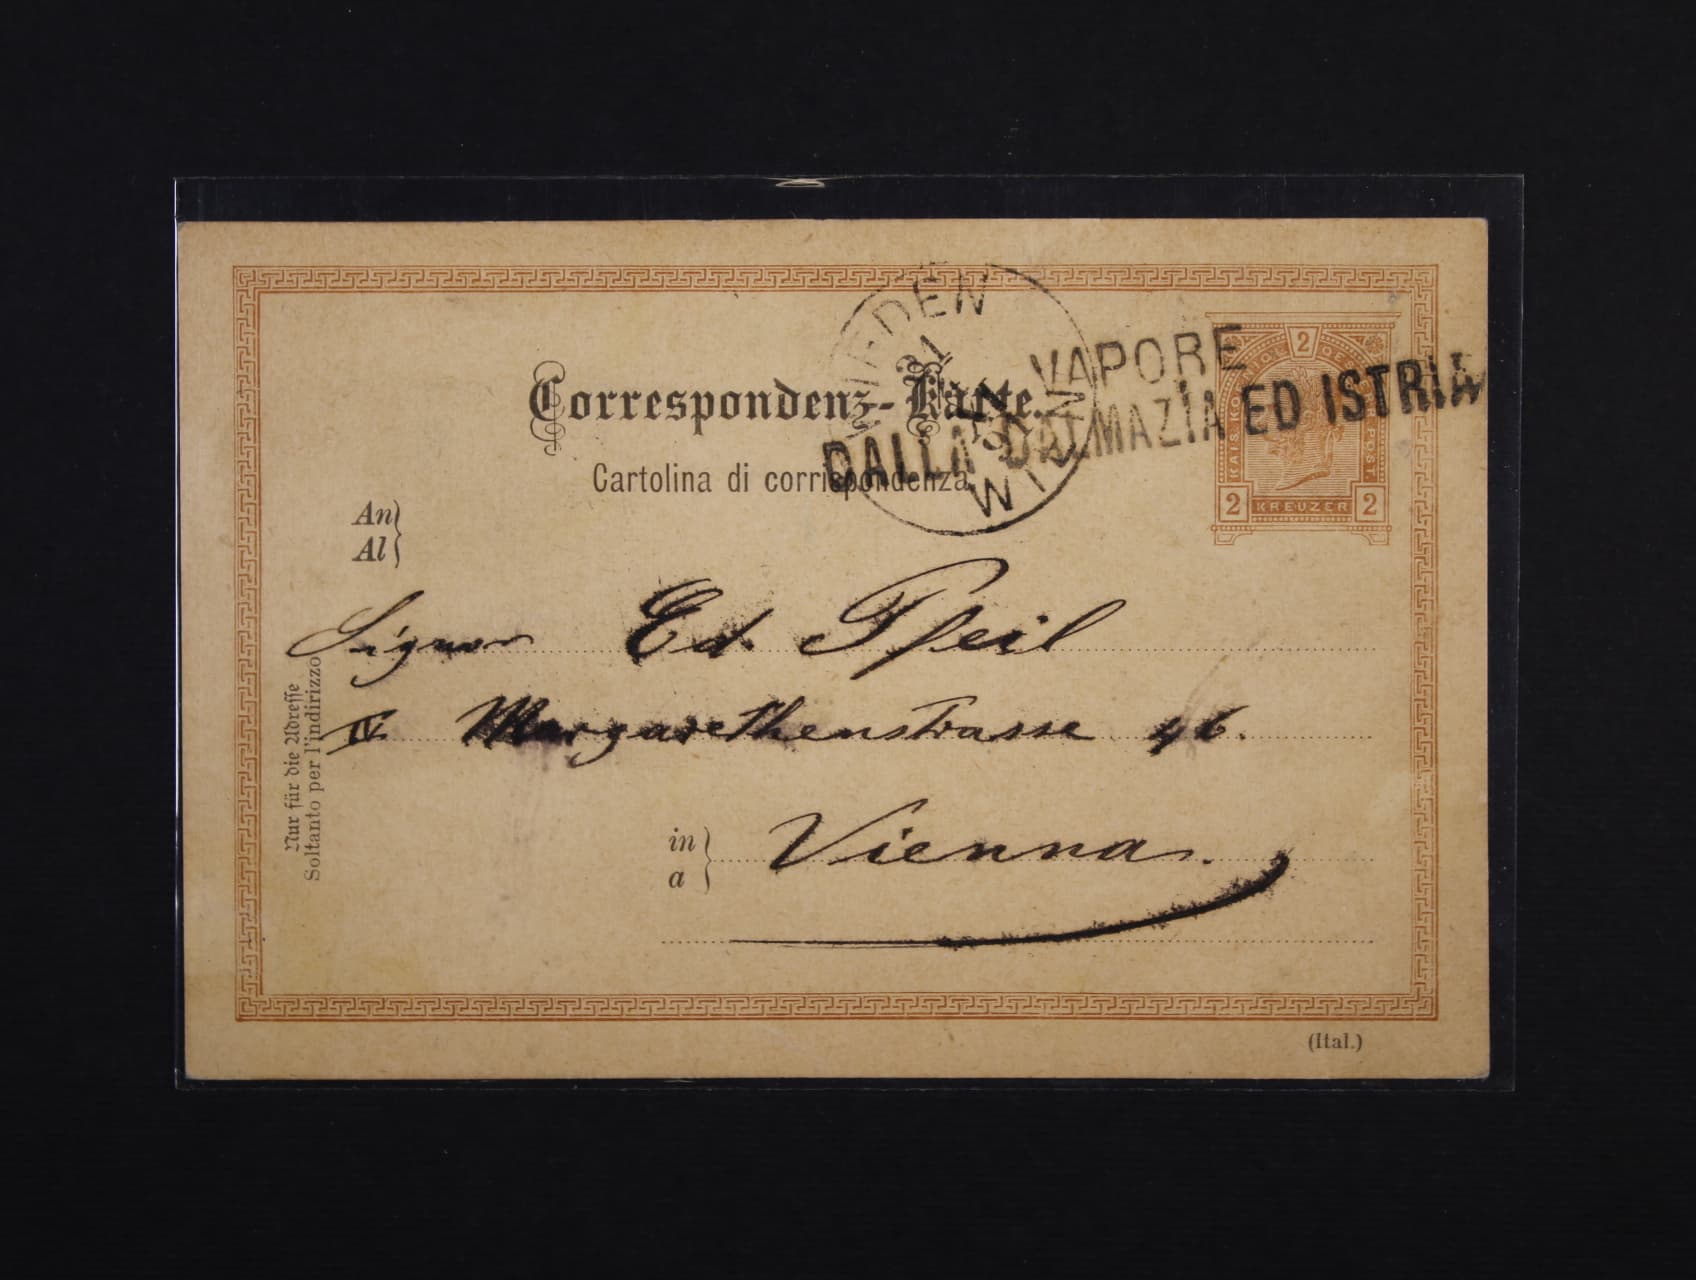 WIEDEN
21
WIEN
VAPORE
DALLA DALMAZIA ED ISTRIA
2
KREUZER
2 2
Correspondenz-Karte.
Cartolina di corrispondenza
An
Al
Signor Ed. Pfeil
IV Margarethenstrasse 46.
in
a
Vienna.
Nur für die Adresse
Soltanto per l'indirizzo
(Ital.)